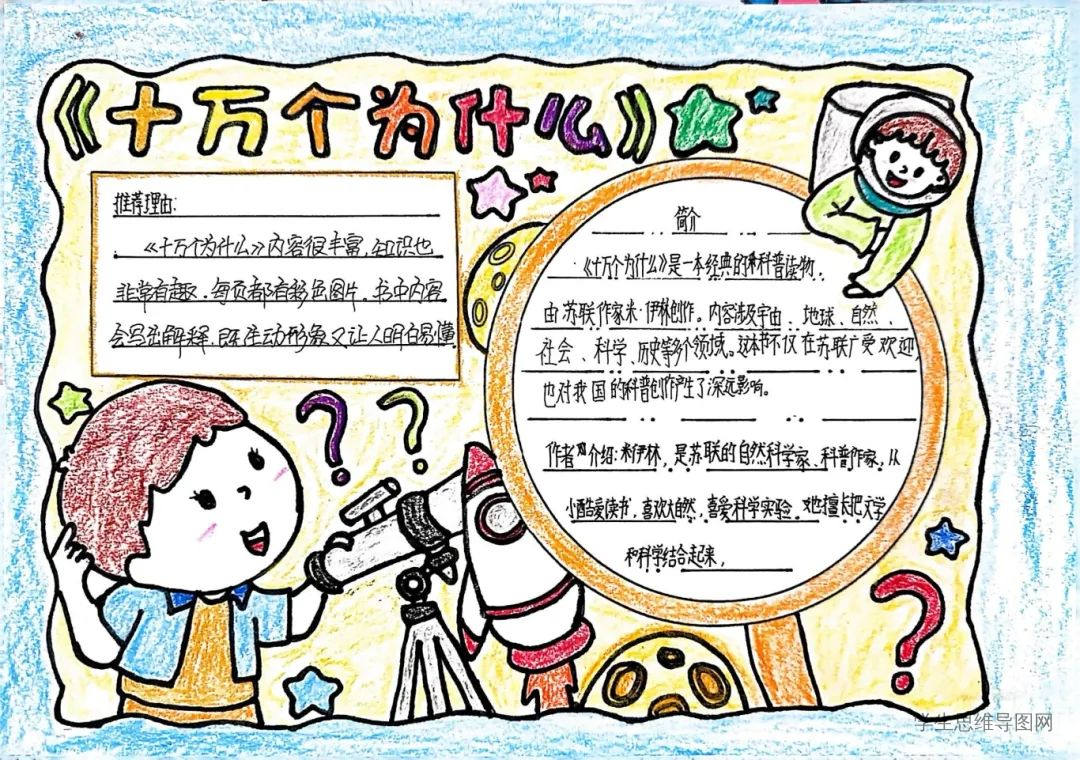 《十万个为什么》
推荐理由:
《十万个为什么》内容很丰富,知识也
非常有趣.每页都有彩色图片.书中内容
会写出解释,既生动形象又让人明白易懂
简介
《十万个为什么》是一本经典的科普读物.
由苏联作家米·伊林创作。内容涉及宇宙、地球、自然、
社会、科学、历史等多个领域。这本书不仅在苏联广受欢迎,
也对我国的科普创作产生了深远影响。
作者介绍:米伊林,是苏联的自然科学家、科普作家.从
小酷爱读书,喜欢大自然,喜爱科学实验.他擅长把文学
和科学结合起来,
学生思维导图网